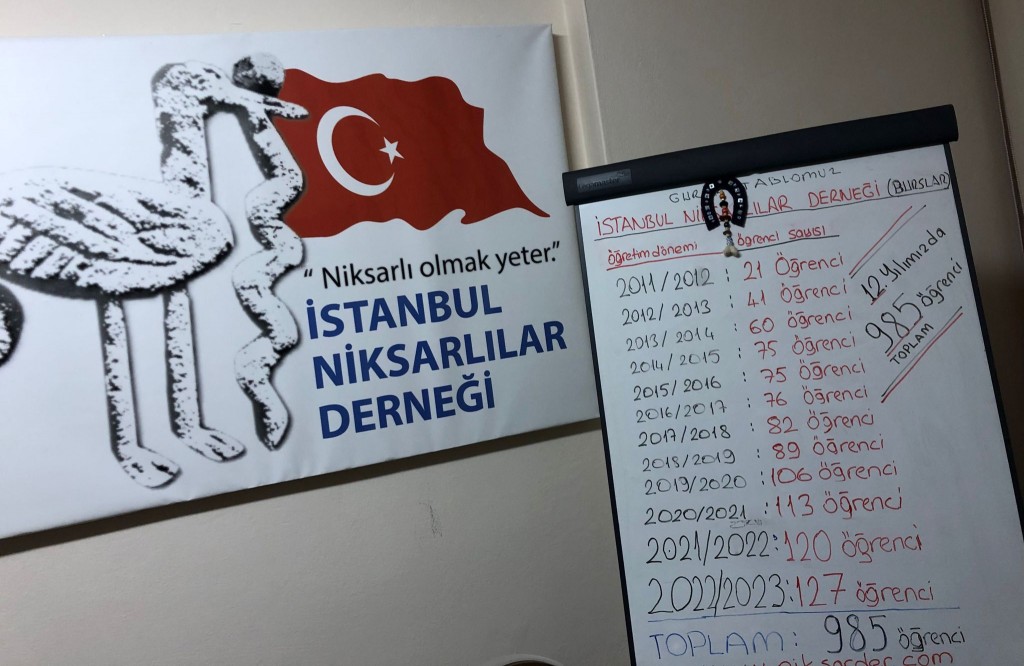 “ Niksarlı olmak yeter.”
İSTANBUL
NİKSARLILAR
DERNEĞİ
TABLOMUZ
İSTANBUL DERNEĞİ (BURSLAR)
öğretim dönemi öğrenci sayısı
2011/2012 : 21 Öğrenci
2012/2013 : 41 Öğrenci
2013/2014 : 60 öğrenci
2014/2015 : 75 öğrenci
2015/2016 : 75 öğrenci
2016/2017 : 76 öğrenci
2017/2018 : 82 öğrenci
2018/2019 : 89 öğrenci
2019/2020 : 106 öğrenci
2020/2021 : 113 öğrenci
2021/2022: 120 öğrenci
2022/2023: 127 öğrenci
TOPLAM: 985 öğrenci
12.Yılımızda
985 öğrenci
TOPLAM